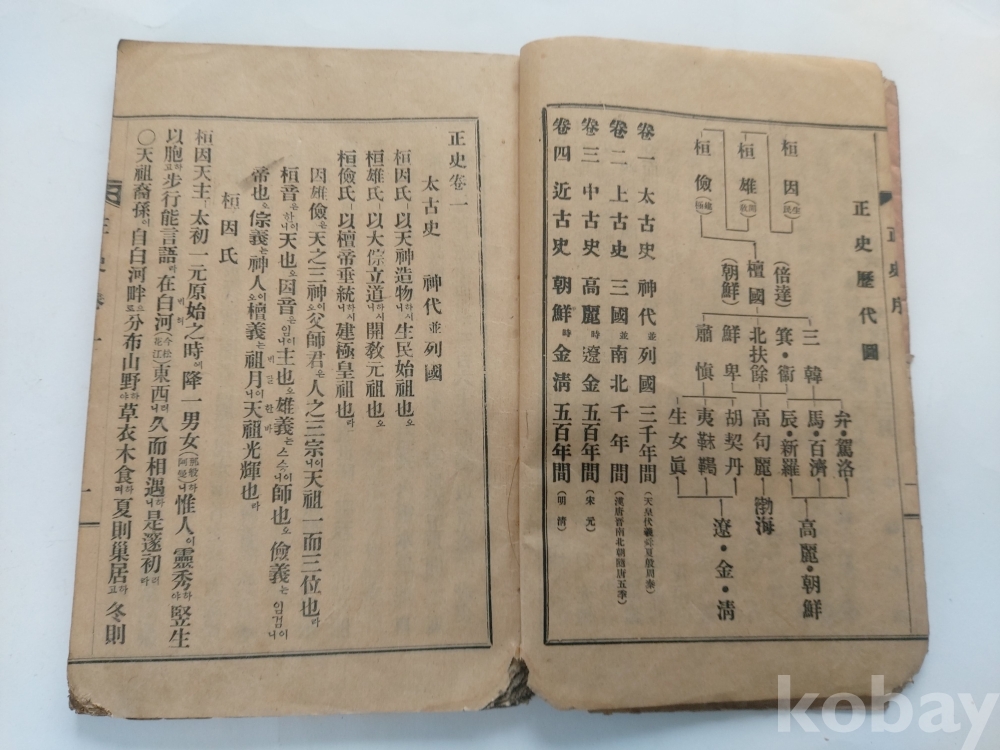 正史歷代圖
桓因(生民)
桓雄(開敎)
桓儉(建極)
(倍達)
檀國
(朝鮮)
三韓
箕·衞
北扶餘
鮮卑
肅愼
弁·駕洛
馬·百濟
辰·新羅
高句麗
渤海
胡契丹
夷靺鞨
生女眞
高麗·朝鮮
遼·金·淸
卷一 太古史 神代並列國 三千年間(天皇伏羲舜夏殷周秦)
卷二 上古史 三國並南北 千年間(漢唐晋南北朝隨唐五季)
卷三 中古史 高麗時遼金 五百年間(宋元)
卷四 近古史 朝鮮時金淸 五百年間(明淸)
正史卷一
太古史 神代並列國
桓因氏ㅣ以天神造物하시니生民始祖也오
桓雄氏ㅣ以大倧立道하시니開敎元祖也오
桓儉氏ㅣ以檀帝垂統하시니建極皇祖也라
因雄儉은天之三神이오父師君은人之三宗이니天祖一而三位也라
桓音은한이니天也오因音은임이니主也오雄義는스승이니師也오儉義는임검이니
帝也오倧義는神人이오檀義는祖月이니天祖光輝也라
桓因氏
桓因天主ㅣ太初一元原始之時에降一男女(那般阿曼)하니惟人이靈秀하야竪生
以胞하고步行能言語라在白河(今松花江)東西러니久而相遇하니是邃初라
〇天祖裔孫이自白河畔으로分布山野하야草衣木食하며夏則巢居하고冬則
一